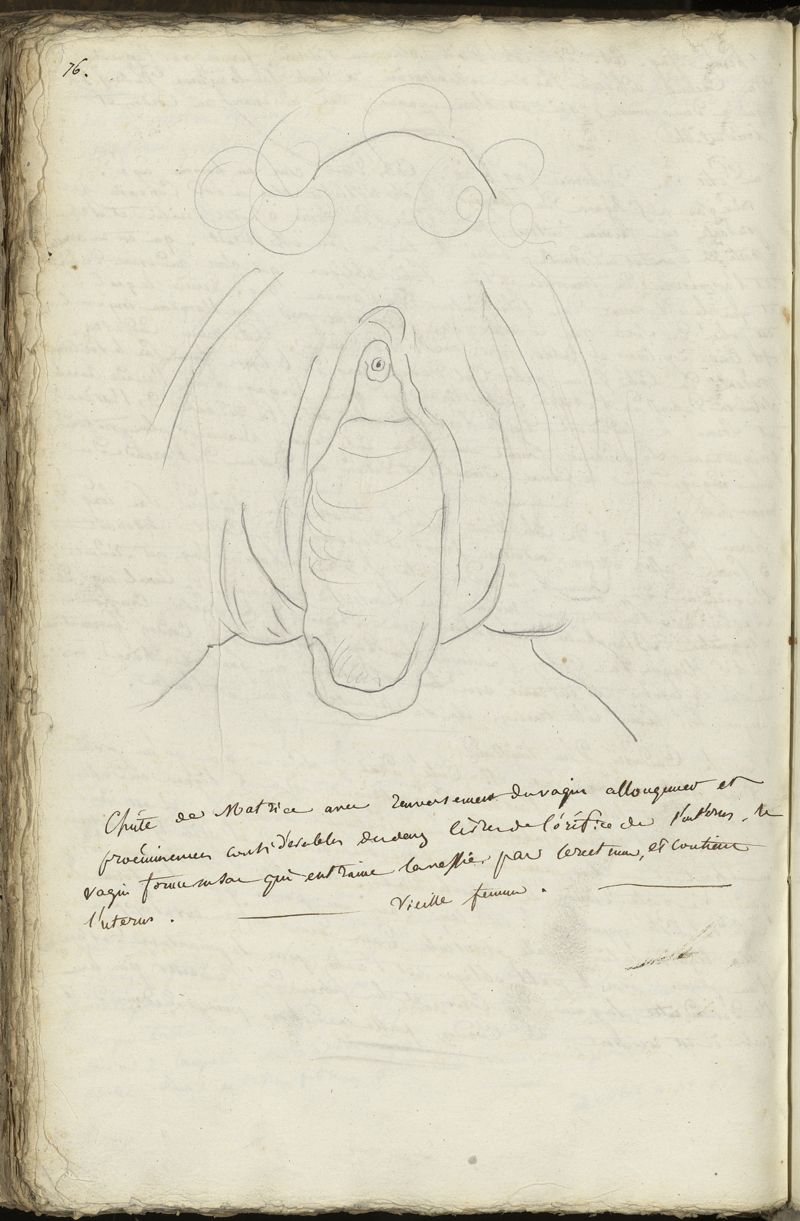 76.
Chûte de Matrice avec renversement du vagin allongement et
proéminences considérables des deux lèvres de l'orifice de l'utérus, le
vagin forme un sac qui entraine la vessie, pas le rectum, et contient
l'uterus. Vieille femme.